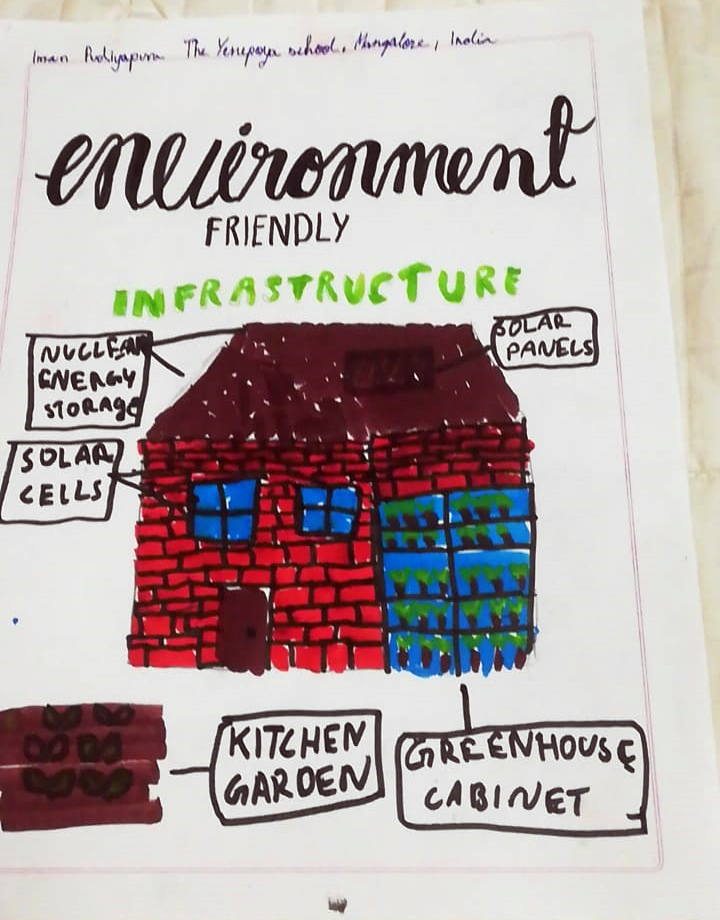 Iman The Yenepoya school, Mangalore, India
environment
FRIENDLY
INFRASTRUCTURE
NUCLEAR
ENERGY
STORAGE
SOLAR
PANELS
SOLAR
CELLS
KITCHEN
GARDEN
GREENHOUSE
CABINET